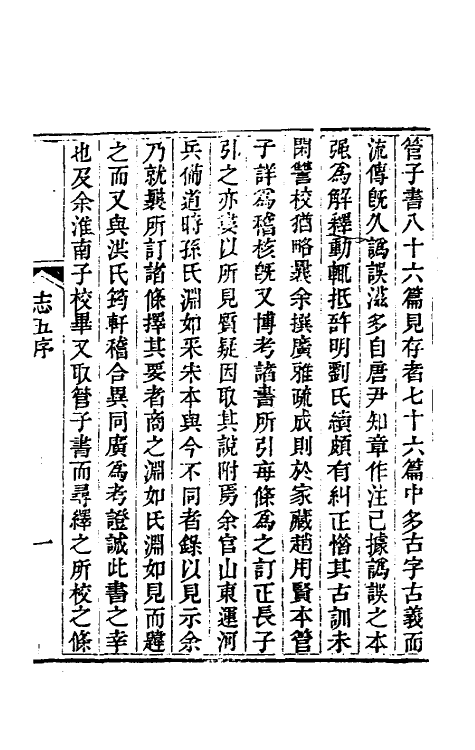 管子書八十六篇見存者七十六篇中多古字古義而
流傳旣久譌誤滋多自唐尹知章作注已據譌誤之本
强爲解釋動輒抵牾明劉氏績頗有糾正惜其古訓未
閑讐校猶略曩余撰廣雅疏成則於家藏趙用賢本管
子詳爲稽核旣又博考諸書所引每條爲之訂正長子
引之亦㝮以所見質疑因取其說附焉余官山東運河
兵備道時孫氏淵如采宋本與今不同者錄以見示余
乃就曩所訂諸條擇其要者商之淵如氏淵如見而韙
之而又與洪氏筠軒稽合異同廣爲考證誠此書之幸
也及余淮南子校畢又取管子書而尋繹之所校之條
志五序
一